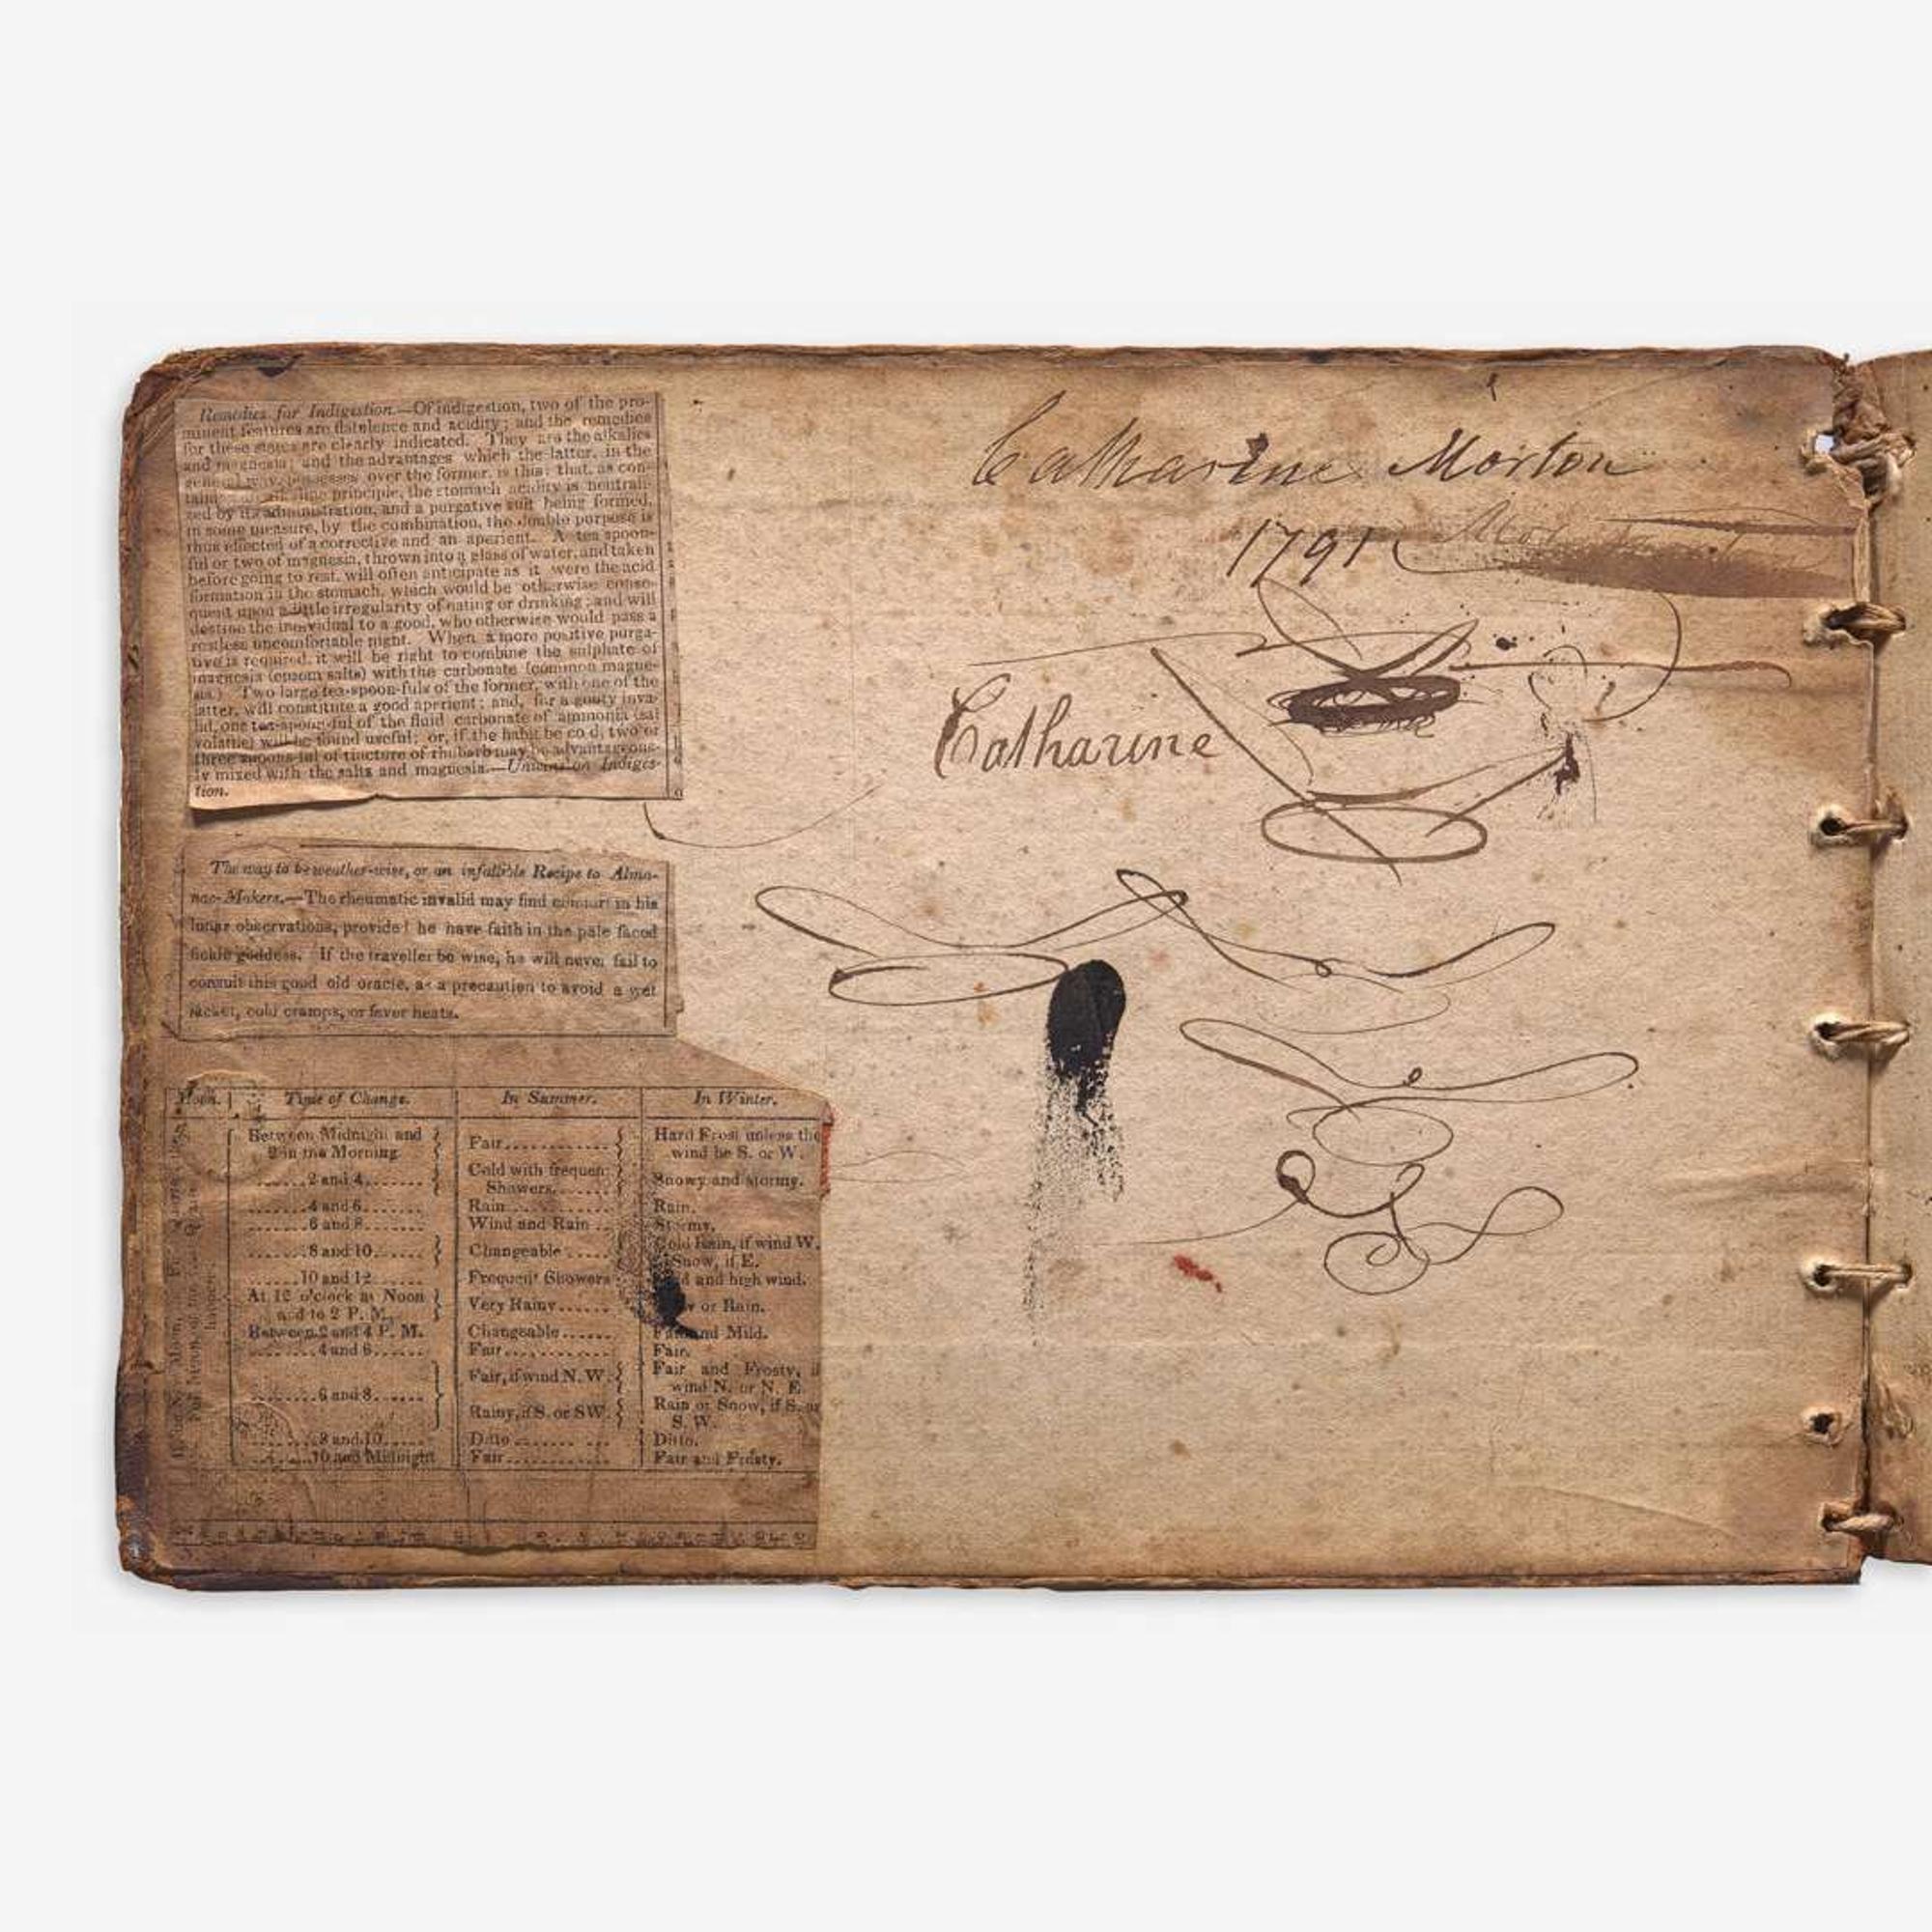 Remedies for Indigestion.—Of indigestion, two of the pro-
minent features are flatulence and acidity; and the remedies
for these states are clearly indicated. They are the alkalies
and magnesia; and the advantages which the latter, in the
general way, possesses over the former, is this: that, as con-
principle, the stomach acidity is neutrali-
zed by its administration, and a purgative salt being formed,
in some measure, by the combination, the double purpose is
thus effected of a corrective and an aperient. A tea spoon-
ful or two of magnesia, thrown into a glass of water, and taken
before going to rest, will often anticipate as it were the acid
formation in the stomach, which would be otherwise conse-
quent upon a little irregularity of eating or drinking; and will
destine the individual to a good, who otherwise would pass a
restless uncomfortable night. When a more positive purga-
tive is required, it will be right to combine the sulphate of
magnesia (epsom salts) with the carbonate (common magne-
sia.) Two large tea-spoon-fuls of the former, with one of the
latter, will constitute a good aperient; and, for a gouty inva-
lid, one tea-spoon-ful of the fluid carbonate of ammonia (sal
volatile) will be found useful; or, if the habit be cold, two or
three spoons-ful of tincture of rhubarb may be advantageous-
ly mixed with the salts and magnesia.— on Indiges-
tion.
The way to be weather-wise, or an infallible Recipe to Alma-
nac-Makers.—The rheumatic invalid may find comfort in his
lunar observations, provided he have faith in the pale faced
fickle goddess. If the traveller be wise, he will never fail to
consult this good old oracle, as a precaution to avoid a wet
jacket, cold cramps, or fever heats.
Moon. Time of Change. In Summer. In Winter.
Between Midnight and 2 in the Morning Fair............ Hard Frost unless the wind be S. or W.
.......2 and 4....... Cold with frequent Showers....... Snowy and stormy.
.......4 and 6....... Rain............ Rain.
.......6 and 8....... Wind and Rain .. Stormy.
.......8 and 10....... Changeable ..... Cold Rain, if wind W. Snow, if E.
......10 and 12...... Frequent Showers and high wind.
At 12 o'clock at Noon and to 2 P. M. Very Rainy...... or Rain.
Between 2 and 4 P. M. Changeable...... Fair and Mild.
.......4 and 6....... Fair............ Fair.
.......6 and 8....... Fair, if wind N. W. Fair and Frosty, if wind N. or N. E.
Rainy, if S. or SW. Rain or Snow, if S. or S. W.
.......8 and 10...... Ditto ....... ... Ditto.
......10 and Midnight Fair............ Fair and Frosty.
Catharine Morton
1791 Mor
Catharine